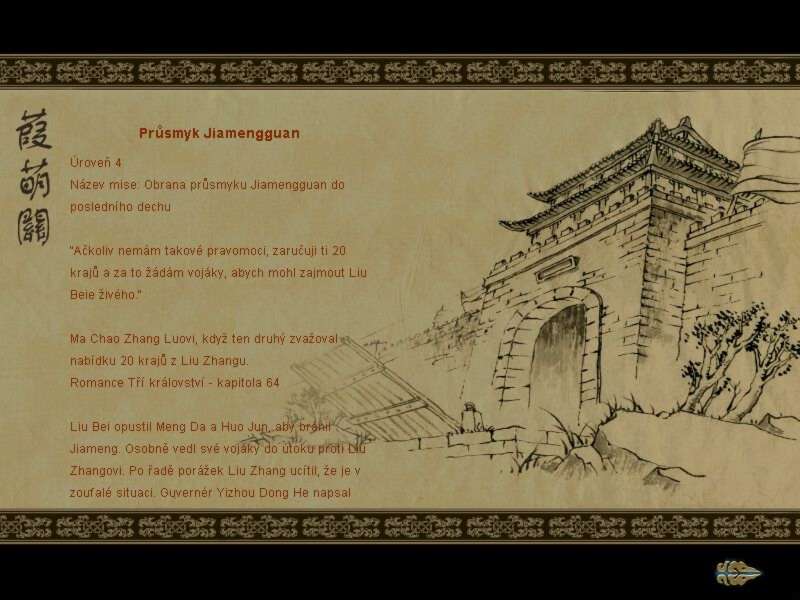 葭萌關
Průsmyk Jiamengguan
Úroveň 4
Název mise: Obrana průsmyku Jiamengguan do
posledního dechu
"Ačkoliv nemám takové pravomoci, zaručuji ti 20
krajů a za to žádám vojáky, abych mohl zajmout Liu
Beie živého."
Ma Chao Zhang Luovi, když ten druhý zvažoval
nabídku 20 krajů z Liu Zhangu.
Romance Tří království - kapitola 64
Liu Bei opustil Meng Da a Huo Jun, aby bránil
Jiameng. Osobně vedl své vojáky do útoku proti Liu
Zhangovi. Po řadě porážek Liu Zhang ucítil, že je v
zoufalé situaci. Guvernér Yizhou Dong He napsal